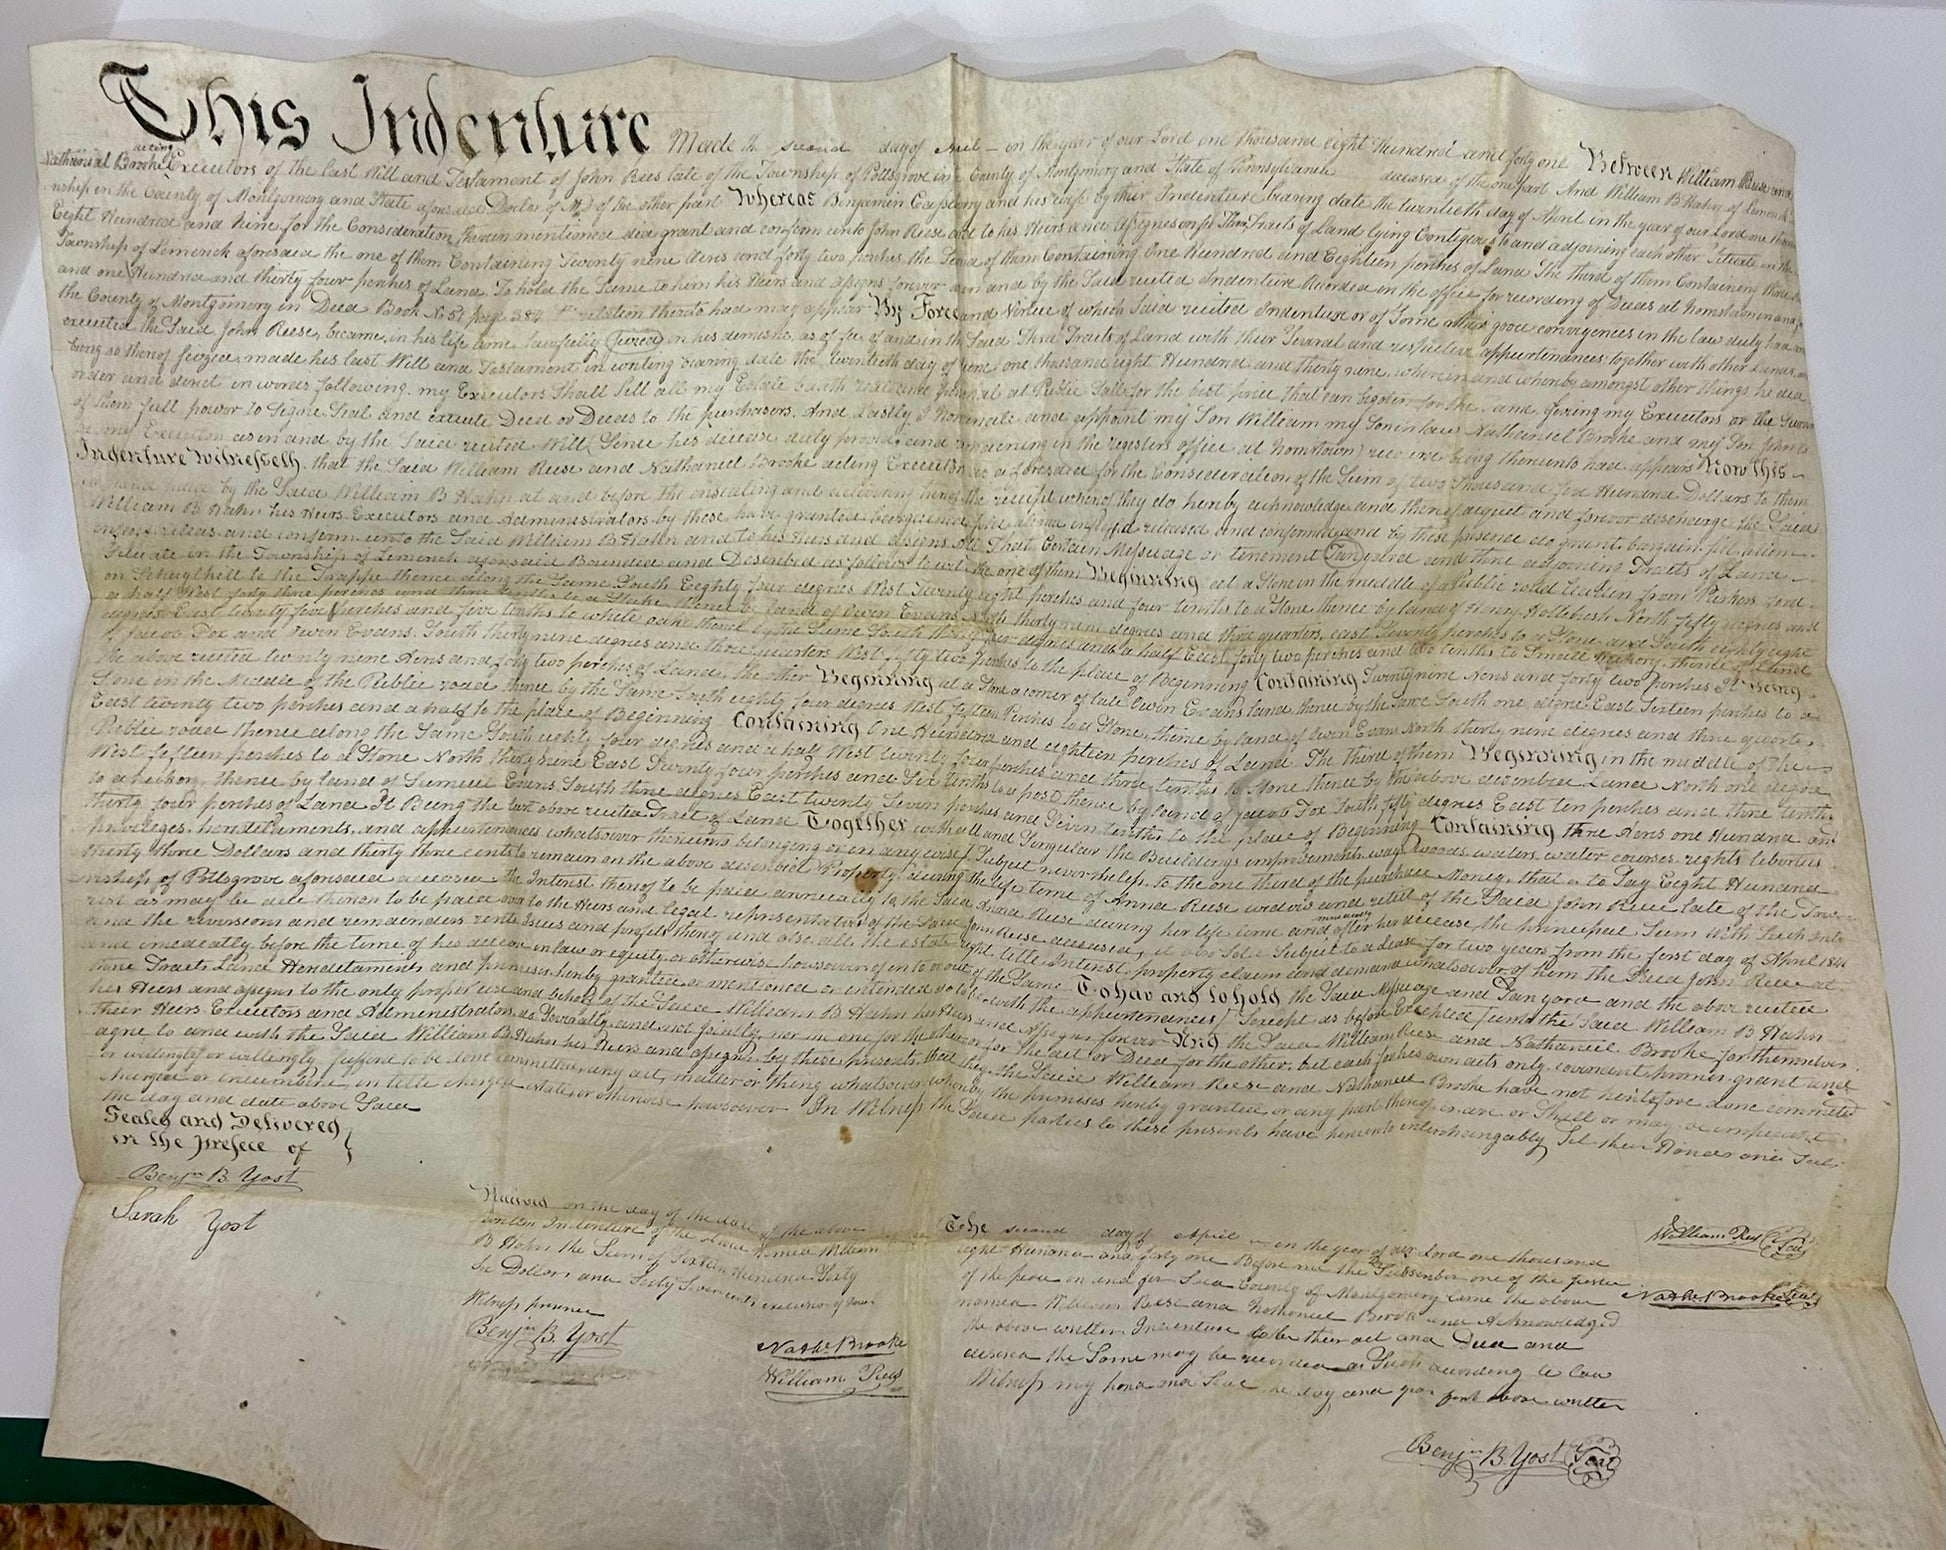 This Indenture Made the second day of April in the year of our Lord one thousand eight Hundred and forty one Between William Reese and
Nathaniel Brooke acting Executors of the last Will and Testament of John Rees late of the Township of Pottsgrove in County of Montgomery and State of Pennsylvania deceased of the one part And William B Hahn of
nship in the County of Montgomery and State aforesaid Doctor of MD of the other part Whereas Benjamin and his wife by their Indenture bearing date the twentieth day of April in the year of our Lord one
Eight Hundred and Nine for the Consideration therein mentioned did grant and confirm unto John Reese and to his Heirs and Assignes Three Tracts of Land lying Contigous to and adjoining each other Situate in the
Township of Limerick aforsaid the one of them Containing Twenty nine Acres and forty two perches the of them Containing One Hundred and Eighteen perches of Land The third of them Containing three
and one Hundred and thirty four perches of Land. To hold the Same to him his Heirs and Assigns forever and by the Said recited Indenture Recorded in the office for recording of Deeds at in and for
the County of Montgomery in Deed Book No 51 page 384 &c relation thereto had may appear By Force and Virtue of which Said recited Indenture or of Some other good conveyances in the law duly had and
executed the Said John Reese, became, in his life time lawfully in his demesne as of fee of and in the Said Three Tracts of Land with their Several and respective appurtenances together with other Lands, and
being so thereof made his last Will and Testament in writing bearing date the twentieth day of June one thousand eight Hundred and thirty nine, wherein and whereby amongst other things he did
order and direct in words following. my Executors Shall Sell all my Estate both real and personal at Public Sale for the best price that can be gotten for the Same, giving my Executors or the
of them full power to Signe Seal and execute Deed or Deeds to the purchasers. And Lastly I Nominate and appoint my Son William my Soninlaw Nathaniel Brooke and my Son John
my Executors as in and by the Said recited Will (Since his decease duly proved and in the registers office at Norristown) being thereunto had appears Now this
Indenture Witnesseth. that the Said William Reese and Nathaniel Brooke acting Executors as aforesaid for the Consideration of the Sum of two Thousand five Hundred Dollars to them
paid by the Said William B Hahn at and before the ensealing and delivering hereof the receipt whereof they do hereby acknowledge and thereof acquit and forever descharge the Said
William B Hahn his Heirs Executors and Administrators by these, have granted bargained Sold aliened released and confirmed and by these presence do grant, bargain, sell, alien
enfeoff, releas and confirm unto the Said William B Hahn and to his Heirs and Assigns All That Certain Messuage or tenement Tanyard and three adjoining Tracts of Land
Situate in the Township of Limerick aforsaid Bounded and Described as follows to wit the one of them Beginning at a Stone in the middle of a Public road leadin from Perkers ford
on Schuylkill to the Trappe thence along the Same South Eeghty four degrees West Twenty eight perches and four tenths to a Stone thence by land of Henry North fifty degrees and
a half West forty three perches and three tenths to a Stake thence by land of Owen Evans North thirty nine degrees and three quarters, east Seventy perches to a Stone, and South eighty eight
degrees East twenty five perches and five tenths to white oak thence by the Same South degrees and a half East forty two perches and two tenths to Small thence by Land
of Jacob Fox and Owen Evans. South thirty nine degrees and three quarters West fifty two perches to the place of Beginning Containing Twenty nine Acres and forty two perches It Being
the above recited twenty nine Acres and forty two perches of Land, the other Beginning at a Stone a corner of late Owen Evans land, thence by the Same South one degree East Sixteen perches to a
Stone in the Middle of the Public road thence by the Same South eighty four degrees West fifteen Perches to a Stone, thence by land of Owen Evans North thirty nine degrees and three quarters
East twenty two perches and a half to the place of Beginning Containing One Hundred and eighteen perches of Land The third of them Beginning in the middle of the
Public road thence along the Same South eighty four degrees and a half West twenty four perches and three tenths to Stone thence by the above described Land North one degree
West fefteen perches to a Stone North thirty nine East Twenty four perches and Six tenths to a post thence by land of Jacob Fox South fifty degrees East ten perches and three tenths
to a hickory, thence by land of Samuel Evans South three degrees East twenty Seven perches and Seven tenths to the place of Beginning Containing three Acres one Hundred and
thirty four perches of Land It Being the last above recited Tract of Land Together with all and Singular the Buildings improvements ways woods, waters, water courses rights leborties
privileges, hereditaments, and appurtenances whatsoever thereunto belonging or in any wise / Subject nevertheless to the one third of the purchase Money, that is to Say Eight Hundred
thirty three Dollars and thirty three cents to remain on the above described Property during the life time of Anna Reese widow and relict of the Said John Reese late of the Town
nship of Pottsgrove aforesaid deceased the Interest thereof to be paid annually to the Said Anna Reese during her life time and immediately after her decease the principal Sum With Such Inte
rest as may be due theron to be paid over to the Heirs and legal representatives of the Said John Reese deceased, it also Sold Subject to a Lease for two years from the first day of April 1840
and the reversions and remainders rents Isues and profits thereof and also all the estate right, title Interest, property claim and demand whatsoever of him the Said John Reese at
and imedeatly before the time of his decease in law or equity, or otherwise howsoever of in to or out of the Same To have and to hold the Said Messuage and Tan yard and the above recited
three Tracts Land Hereditaments and premises hereby granted or mentioned or intended so to be with the appurtenances / Except as before Excepted / unto the Said William B Hahn
his Heirs and assigns to the only proper use and behoof of the Said William B Hahn his Heirs and Assigns forever And the Said William Reese and Nathaniel Brooke for themselves
their Heirs Executors and Administrators, do Severally, and not jointly, nor in one for the other or for the act or Deed for the other, but each for his own acts only, covenant, promis, grant and
agree to and with the Said William B Hahn his Heirs and assigns by these presents, that they the Said William Reese and Nathaniel Brooke have not heretofore done committed
or willingly or willengly suffered to be done committed, any act, matter or thing whatsoever whereby the premises hereby granted, or any part thereof, is are or Shall or may be impeached
charged or incumbered, in title charge, estate, or otherwise howsoever In Witness the Said parties to these presents have hereunto interchangeably Set their Hands and Seals
the day and date above Said
Sealed and Delivered
in the presece of
Benjn B. Yost
Sarah Yost
Received on the day of the date of the above
written Indenture of the above named William
B Hahn the Sum of Sixteen Hundred Sixty
Six Dollars and Sixty Seven cents
Witness presence
Benjn B. Yost
Nathl Brooke
William Rees
The second day of April in the year of our Lord one thousand
eight Hundred and forty one Before me the Subscriber one of the Justice
of the peace in and for Said County of Montgomery Came the above
named William Reese and Nathaniel Brook and Acknowledged
the above written Indenture to be their act and Deed and
desired the Same may be recorded as Such according to law
Witness my hand and Seal the day and year first above written
William Rees Seal
Nathl Brooke Seal
Benjn B. Yost Seal